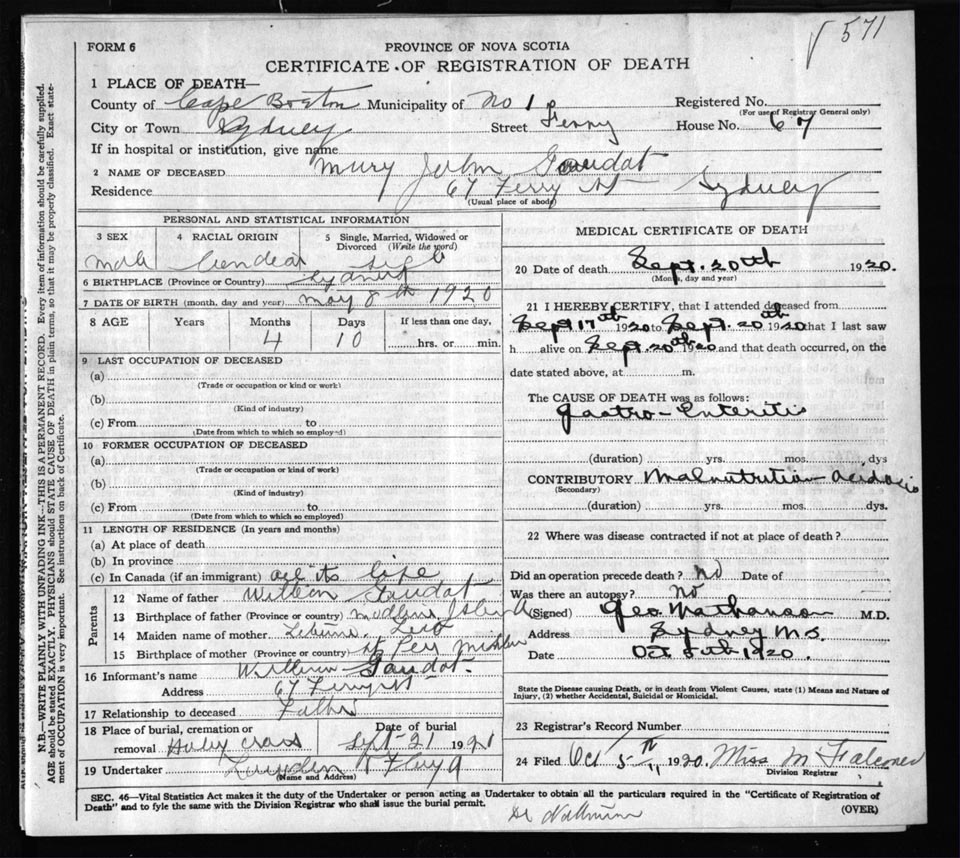 571
FORM 6
PROVINCE OF NOVA SCOTIA
CERTIFICATE OF REGISTRATION OF DEATH
1 PLACE OF DEATH—
County of Cape Breton Municipality of No 1 Registered No.
(For use of Registrar General only)
City or Town Sydney Street Ferry House No. 67
If in hospital or institution, give name
2 NAME OF DECEASED Mury John Gaudat
Residence 67 Ferry St Sydney
(Usual place of abode)
PERSONAL AND STATISTICAL INFORMATION
3 SEX 4 RACIAL ORIGIN 5 Single, Married, Widowed or Divorced (Write the word)
male
6 BIRTHPLACE (Province or Country) Sydney
7 DATE OF BIRTH (month, day and year) may 8th 1920
8 AGE Years Months Days If less than one day,
4 10 hrs. or min.
9 LAST OCCUPATION OF DECEASED
(a)
(Trade or occupation or kind or work)
(b)
(Kind of industry)
(c) From to
(Date from which to which so employed)
10 FORMER OCCUPATION OF DECEASED
(a)
(Trade or occupation or kind of work)
(b)
(Kind of industry)
(c) From to
(Date from which to which so employed)
11 LENGTH OF RESIDENCE (In years and months)
(a) At place of death
(b) In province
(c) In Canada (if an immigrant) all its life
Parents
12 Name of father William Gaudat
13 Birthplace of father (Province or country) Island
14 Maiden name of mother
15 Birthplace of mother (Province or country) St
16 Informant's name William Gaudat
Address 67 Ferry St
17 Relationship to deceased Father
18 Place of burial, cremation or removal Holy Cross Date of burial Sept 21 1921
19 Undertaker
(Name and Address)
MEDICAL CERTIFICATE OF DEATH
20 Date of death Sept. 20th 1920.
(Month, day and year)
21 I HEREBY CERTIFY, that I attended deceased from
Sept 17th 1920 to Sept. 20th 1920 that I last saw
h alive on Sept. 20th 1920 and that death occurred, on the
date stated above, at m.
The CAUSE OF DEATH was as follows:
Gastro-Enteritis
(duration) yrs. mos. dys
CONTRIBUTORY Malnutrition acidosis
(Secondary)
(duration) yrs. mos. dys.
22 Where was disease contracted if not at place of death?
Did an operation precede death? No Date of
Was there an autopsy? No
(Signed) Geo. Nathanson M.D.
Address Sydney N.S.
Date Oct 5th 1920.
State the Disease causing Death, or in death from Violent Causes, state (1) Means and Nature of
Injury, (2) whether Accidental, Suicidal or Homicidal.
23 Registrar's Record Number
24 Filed Oct 5th 1920. Miss M Falconer
Division Registrar
SEC. 46—Vital Statistics Act makes it the duty of the Undertaker or person acting as Undertaker to obtain all the particulars required in the "Certificate of Registration of
Death" and to fyle the same with the Division Registrar who shall issue the burial permit.
(OVER)
N.B.—WRITE PLAINLY WITH UNFADING INK—THIS IS A PERMANENT RECORD. Every item of information should be carefully supplied.
AGE should be stated EXACTLY. PHYSICIANS should STATE CAUSE OF DEATH in plain terms, so that it may be properly classified. Exact state-
ment of OCCUPATION is very important. See instructions on back of Certificate.